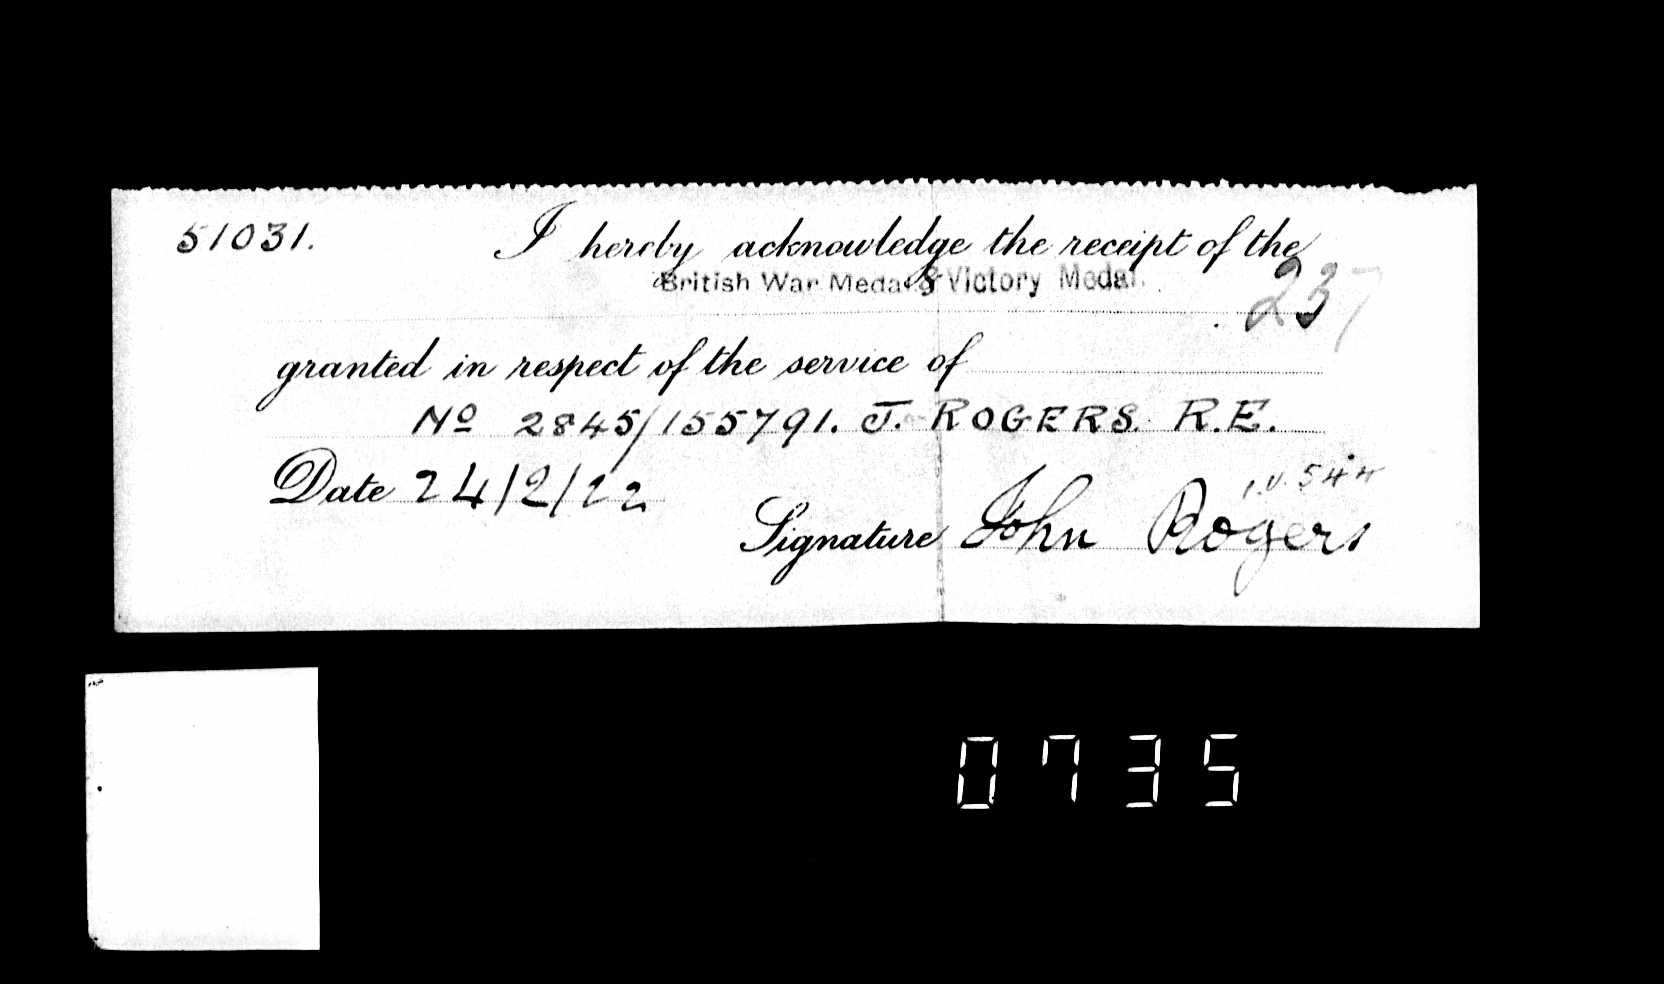 51031. I hereby acknowledge the receipt of the
British War Medal & Victory Medal.
237
granted in respect of the service of
No 2845/155791. J. ROGERS. R.E.
Date 24/2/22
Signature John Rogers
0735